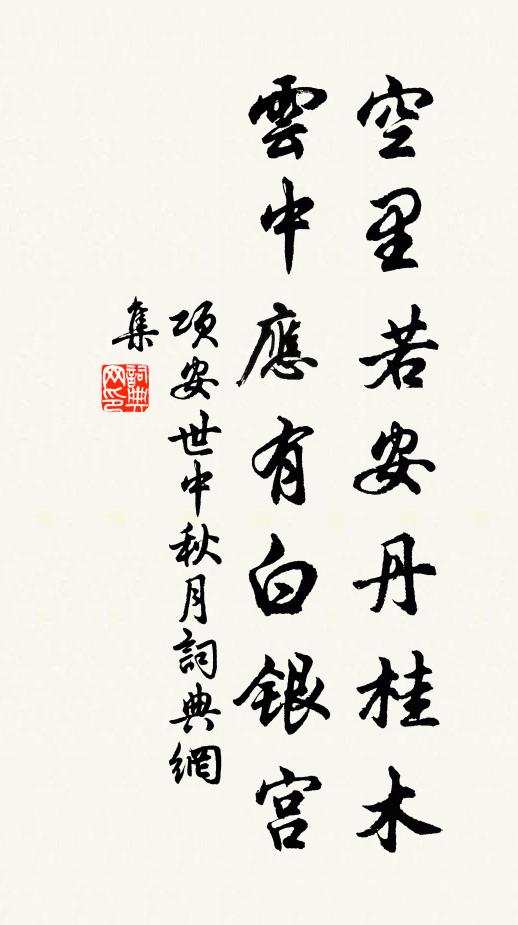 空里若安丹桂木
雲中應有白銀宮
項安世中秋月詞典網
集
詞典网印